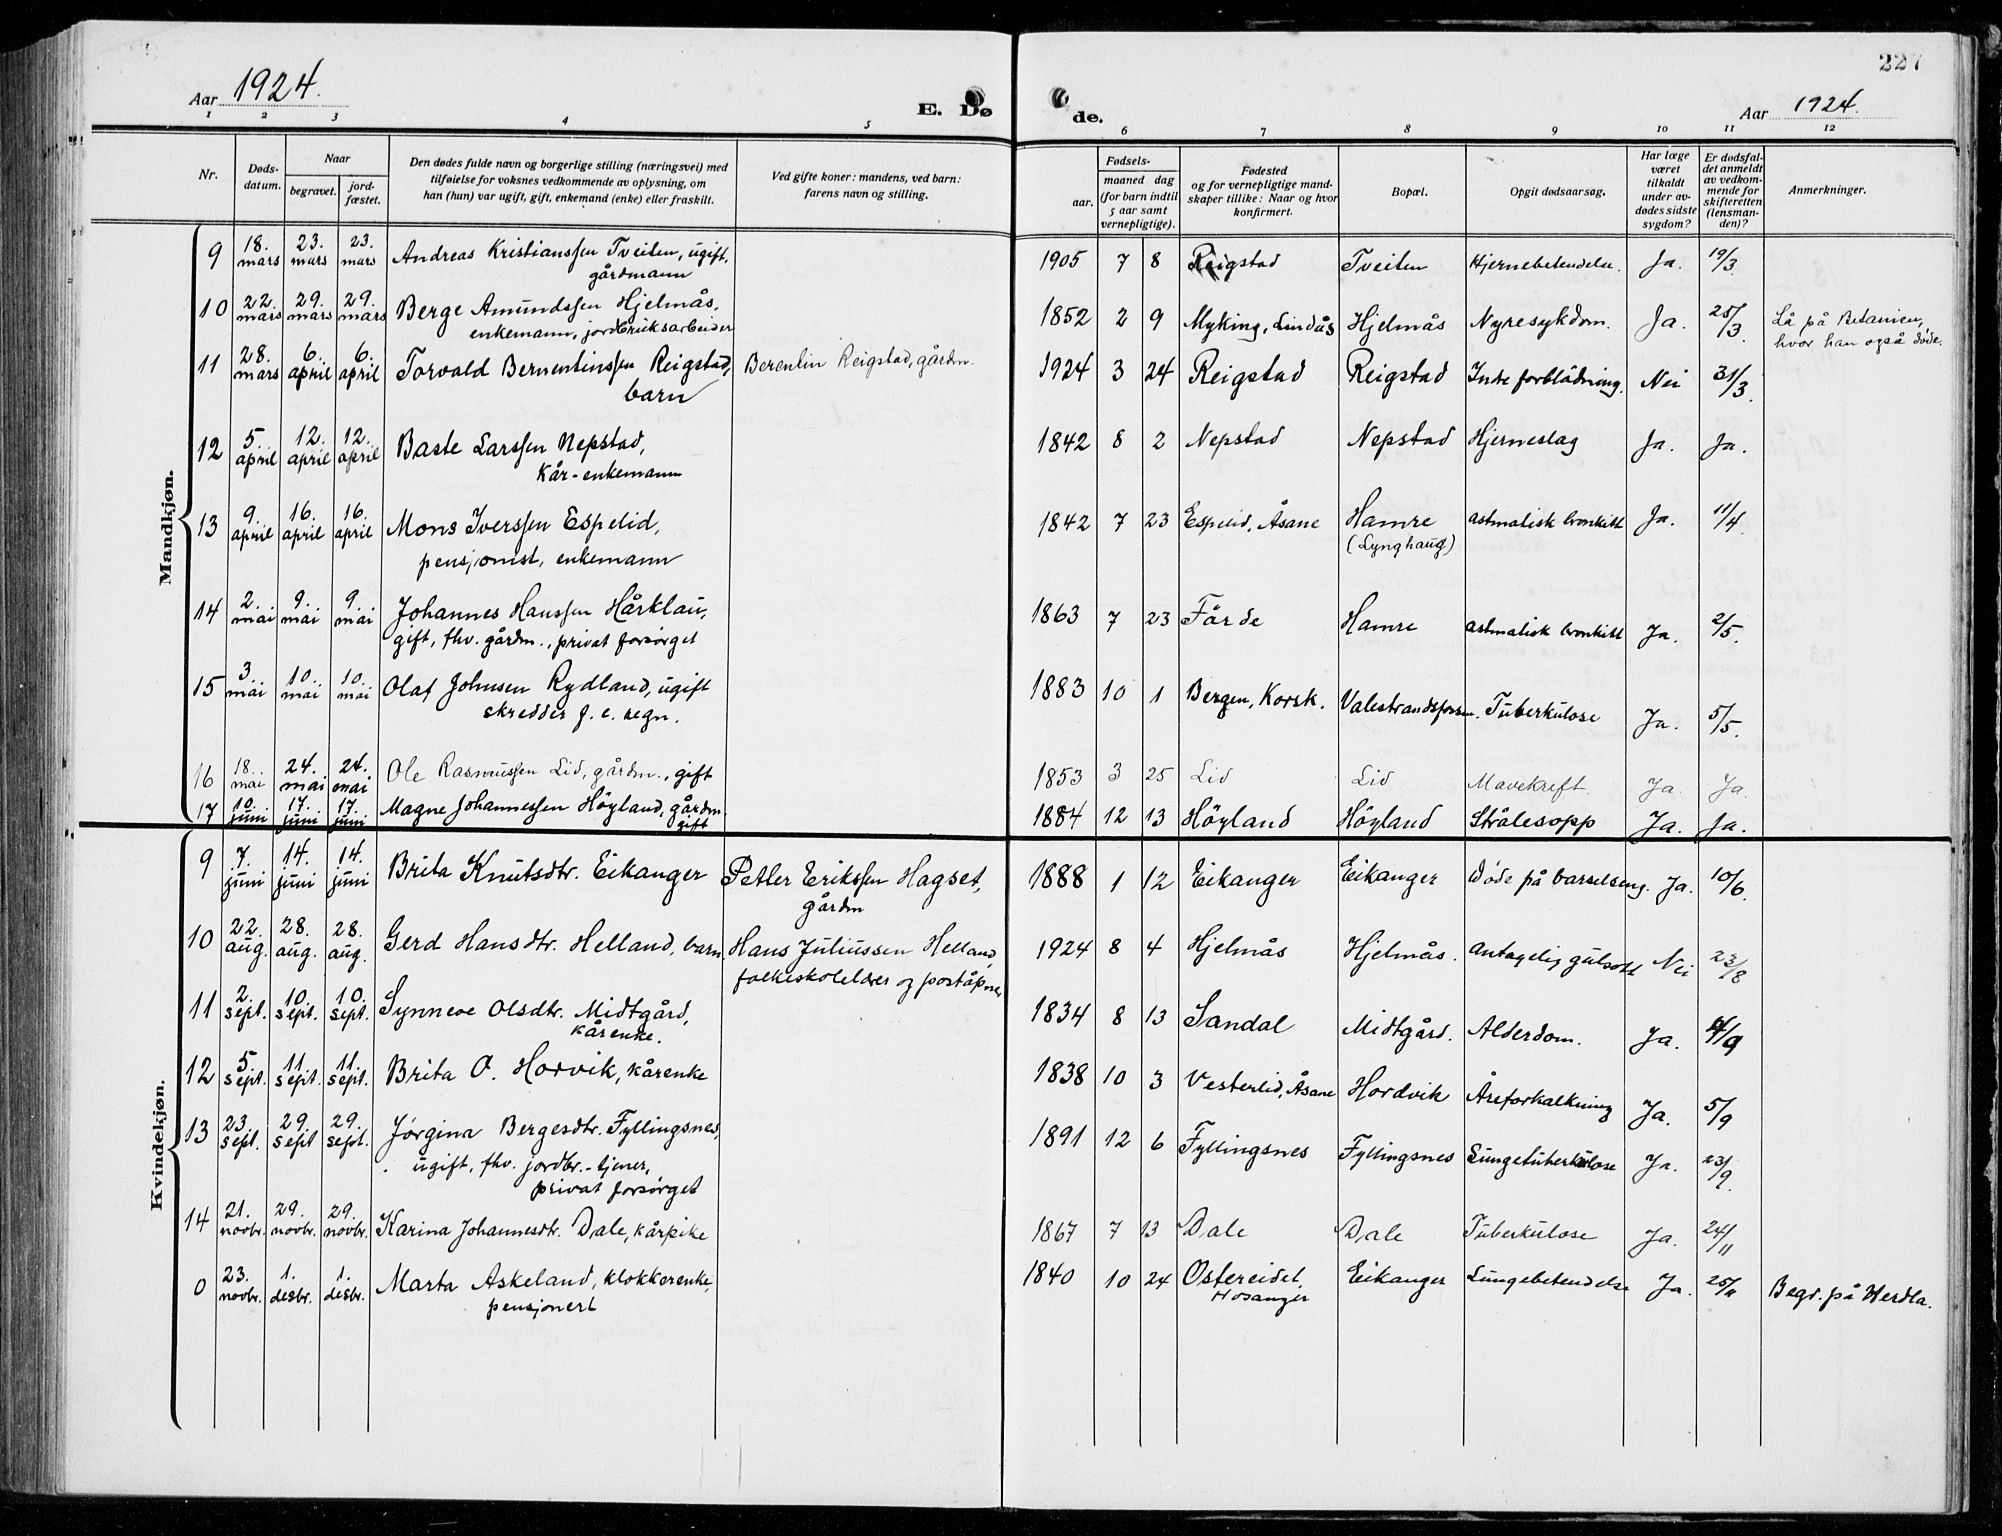 227
Aar 1924.
E. Dø
de.
Aar 1924.
1 2 3 4 5 6 7 8 9 10 11 12
Nr.
Døds-
datum.
Naar
begravet.
jord-
fæstet.
Den dødes fulde navn og borgerlige stilling (næringsvei) med
tilføielse for voksnes vedkommende av oplysning, om
han (hun) var ugift, gift, enkemand (enke) eller fraskilt.
Ved gifte koner: mandens, ved barn:
farens navn og stilling.
Fødsels-
aar.
maaned dag
(for barn indtil
5 aar samt
vernepligtige).
Fødested
og for vernepligtige mand-
skaper tillike: Naar og hvor
konfirmert.
Bopæl.
Opgit dødsaarsag.
Har læge
været
tilkaldt
under av-
dødes sidste
sygdom?
Er dødsfal-
det anmeldt
av vedkom-
mende for
skifteretten
(lensman-
den)?
Anmerkninger.
Mandkjøn.
9 18. mars 23. mars 23. mars Andreas Kristianssen Tveiten, ugift,
gårdmann
1905 7 8 Reigstad Tveiten Hjernebetendelse. Ja. 19/3.
10 22. mars 29. mars 29. mars Berge Amundssen Hjelmås,
enkemann, jordbruksarbeider
1852 2 9 Myking, Lindås Hjelmås Nyresykdom. Ja. 25/3. Lå på Betanien,
hvor han også døde.
11 28. mars 6. april 6. april Torvald Bernentinssen Reigstad,
barn
Berentin Reigstad, gårdm. 1924 3 24 Reigstad Reigstad Indre forblødning. Nei 31/3.
12 5. april 12. april 12. april Baste Larssen Nepstad,
kår-enkemann
1842 8 2 Nepstad Nepstad Hjerneslag Ja. Ja.
13 9. april 16. april 16. april Mons Iverssen Espelid,
pensjonist, enkemann
1842 7 23 Espelid, Åsane Hamre
(Lynghaug)
astmatisk bronkitt Ja. 11/4.
14 2. mai 9. mai 9. mai Johannes Hanssen Hårklau,
gift, fhv. gårdm., privat forsørget
1863 7 23 Førde Hamre astmatisk bronkitt Ja. 2/5.
15 3. mai 10. mai 10. mai Olaf Johnsen Rydland, ugift
skredder f. e. regn.
1883 10 1 Bergen, Korsk. Valestrandsfossen. Tuberkulose Ja. 5/5.
16 18. mai 24. mai 24. mai Ole Rasmussen Lid, gårdm., gift
1853 3 25 Lid Lid Mavekreft. Ja. Ja.
17 10. juni 17. juni 17. juni Magne Johannessen Höyland, gårdm.
gift
1884 12 13 Höyland Höyland Strålesopp Ja. Ja.
Kvindekjøn.
9 7. juni 14. juni 14. juni Brita Knutsdtr. Eikanger Petter Erikssen Hagset,
gårdm
1888 1 12 Eikanger Eikanger Døde på barselseng. Ja. 10/6.
10 22. aug. 28. aug. 28. aug. Gerd Hansdtr. Helland, barn. Hans Juliussen Helland,
folkeskolelærer og poståpner
1924 8 4 Hjelmås Hjelmås. Antagelig gulsott Nei 23/8
11 2. sept. 10. sept. 10. sept. Synneve Olsdtr. Midtgård,
kårenke.
1834 8 13 Sandal Midtgård. Alderdom. Ja. 4/9
12 5. sept. 11. sept. 11. sept. Brita O. Horvik, kårenke
1838 10 3 Vesterlid, Åsane Hordvik Åreforkalkning Ja. 5/9
13 23. sept. 29. sept 29. sept. Jørgina Bergesdtr. Fyllingsnes,
ugift, fhv. jordbr.-tjener,
privat forsørget
1891 12 6 Fyllingsnes Fyllingsnes Lungetuberkulose Ja. 23/9.
14 21. novbr. 29. novbr. 29. novbr. Karina Johannesdtr. Dale, kårpike
1867 7 13 Dale Dale Tuberkulose Ja. 24/11
0 23. novbr. 1. desbr. 1. desbr. Marta Askeland, klokkerenke,
pensjonert
1840 10 24 Ostereidet,
Hosanger
Eikanger Lungebetendelse Ja. 25/11 Begr. på Herdla.